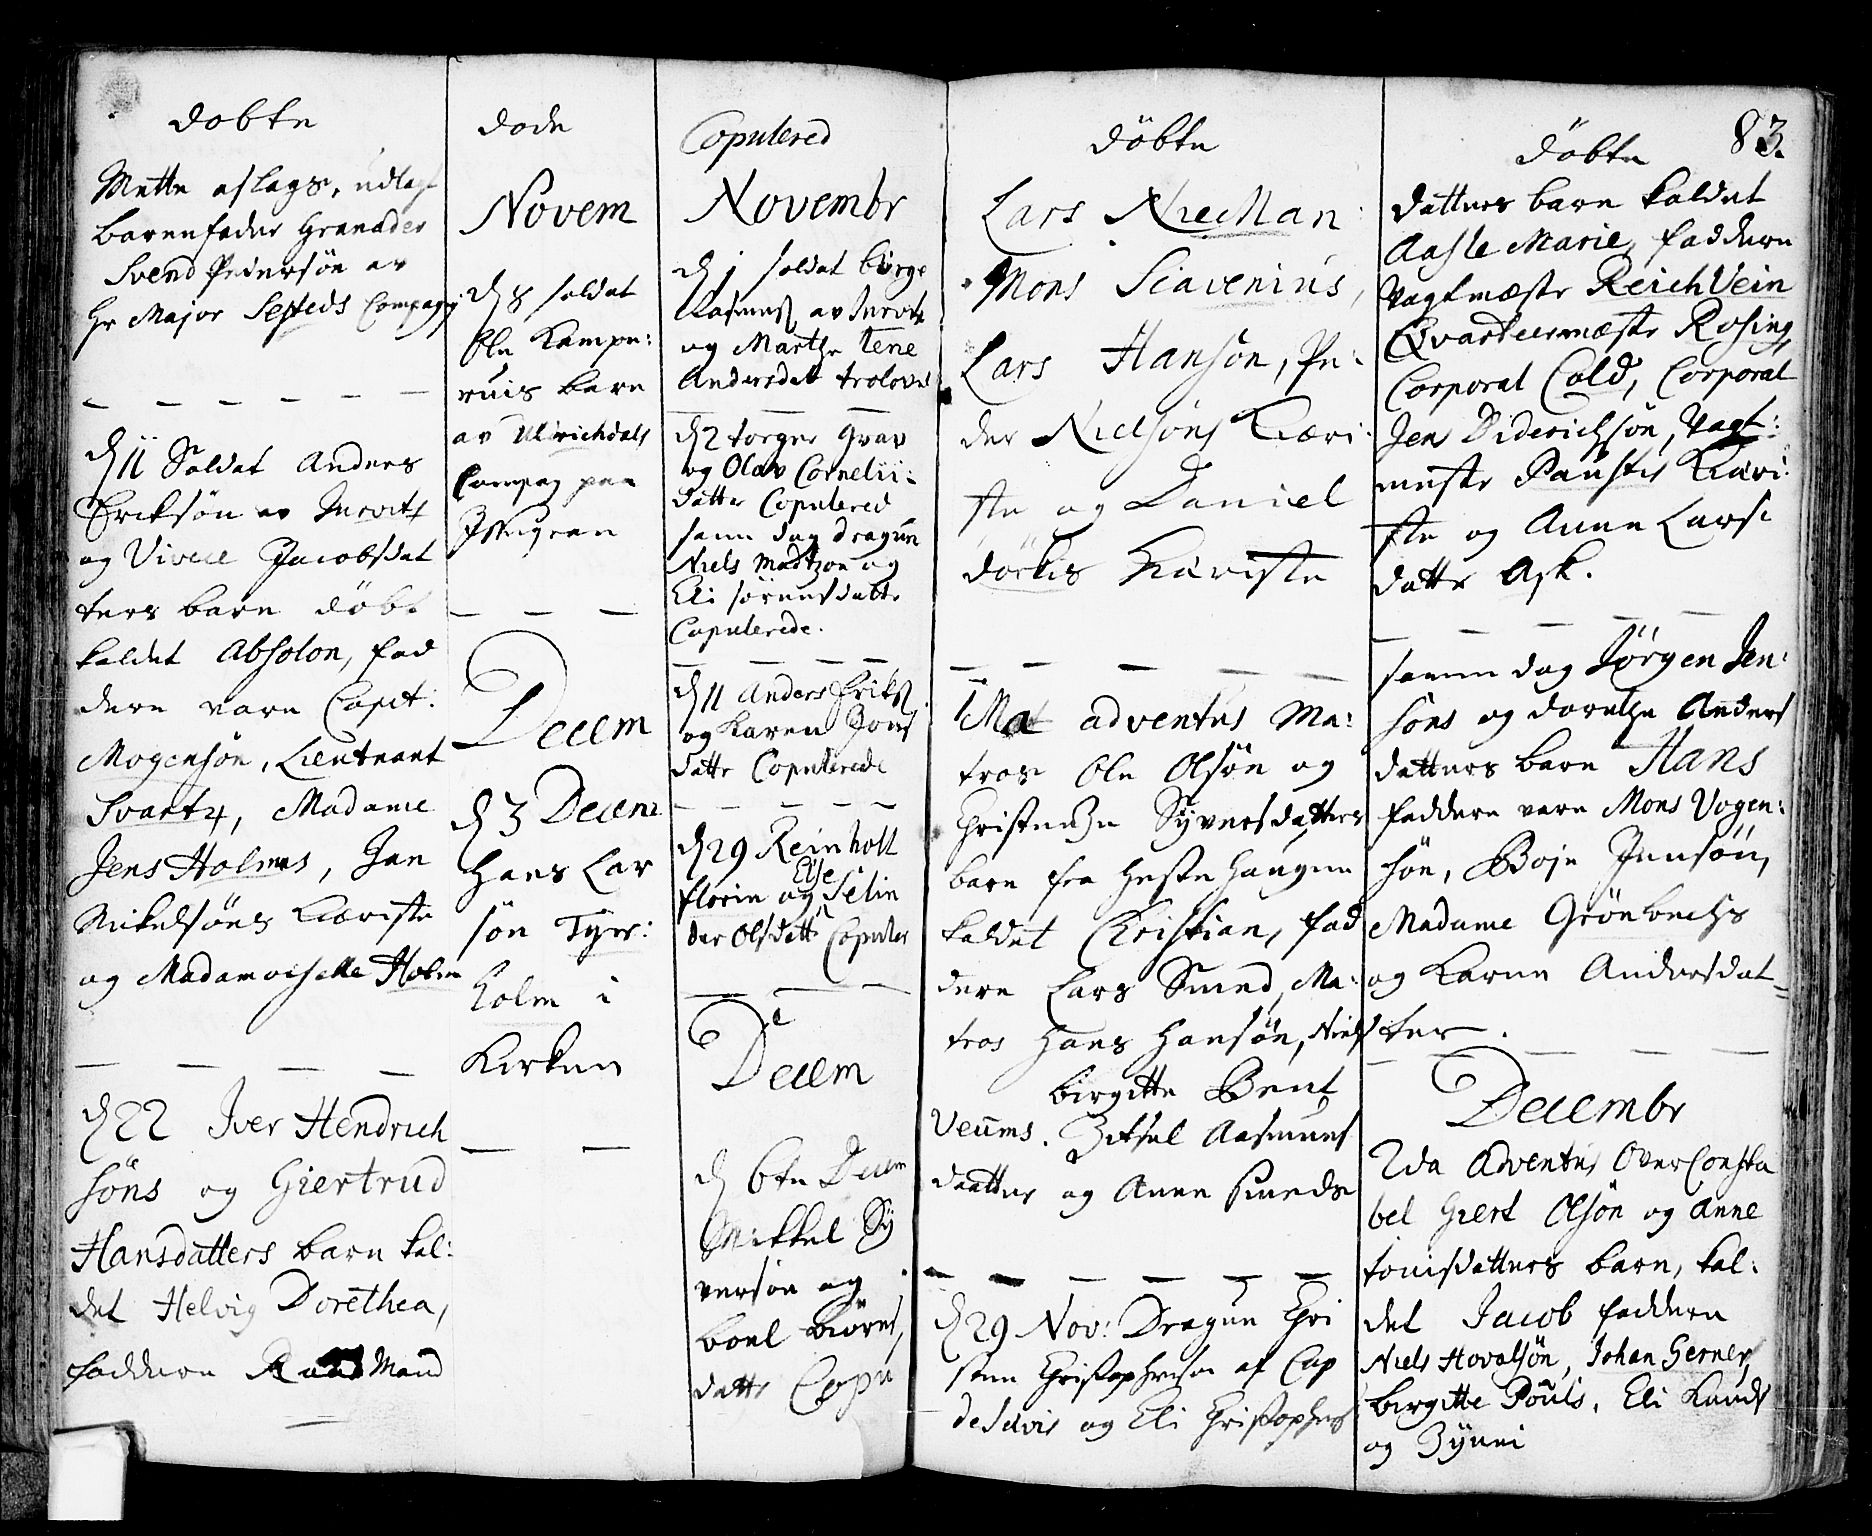 døbte
Mette aslags, udlagt
barenfader Granader
Svend Pedersøn av
Hr Major Sesteds Compagni
d 11 Soldat Anders
Eriksøn av
og Vivele Jacobsdat
ters barn døbt
kaldet Absolon, fad
dere vare Capit:
Mogensøn, Lieutnant
Svartz, Madame
Jens Holmes, Jan
Mikelsøns Kæriste
og Madamoiselle Holm
d 22 Iver Hendrich
søns og Giertrud
Hansdatters barn kal:
det Helvig Dorethea,
faddere Raad Mand
døde
Novem
d 8 soldat
Ole Kampe:
ruis barn
av Ulrichdals
Compag paa
Decem
d 3 Decem
Hans Lar
søn Tyrs:
holm i
Kirken
Copulered
Novembr
d 1 soldat Børge
Rasmus av
og Marthe tene
Andersdat trolovet
d 2 torger Grav
og Olav Cornelii:
datter Copulered
samme dag dragun
Niels Madtzon og
Eli sørensdatter
Copulerede.
d 11 Anders Eriks
og Karen Jons
datter Copulerede
d 29 Reinholt
Else
florin og Selin
der Olsdatter Copuler
Decem
d 6te Decem
Mikkel Sy
versøn og
boel Biørns,
datter Copu
døbte
Lars NieMan
Mons Scavenius,
Lars Hansøn, Pe:
der Nielsøns Kæri
ste og Daniel
dørkis Kæriste
1 Mat adventus Ma:
tros Ole Olsøn og
Christenze Syversdatters
barn fra Hestehaugen
kaldet Christian, fad
dere Lars Smed, Ma:
tros Hans Hansøn, Niels
birgitte Bent
Veums. Zitsel Aasmuns
daatter og Anne Smeds
d 29 Nov: Dragun Chri
sten Christophersøn af Cap
de Seuvis og Eli Christophers
83.
døbte
datters barn kaldet
Aasle Marie, faddere
Vagtmæster ReichVein
Qvarteermæster Rosing,
Corporal Cold, Corporal
Jens Diderichsøn, Vagt:
mester Paustis Kæri
ste og Anne Lars:
datter Ask.
samme dag Jørgen Jen:
søns og dorethe Anders
datters barn Hans
faddere vare Mons Vogen:
søn, Boje Jensøn,
Madame Grønbechs
og Karen Andersdat=
ter.
Decembr
2da Adventus OverConsta
bel Giert Olsøn og Anne
tomisdatters barn, kal:
det Jacob faddere
Niels Hovalsøn, Johan Gerner,
birgitte Pouls, Eli Knuds
og